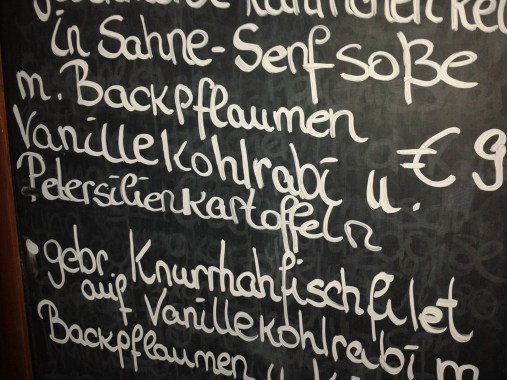 in Sahne-Senfsoße
m. Backpflaumen
Vanillekohlrabi u. € 9
Petersilienkartoffeln
gebr. Knurrhahnfischfilet
auf Vanillekohlrabi m
Backpflaumen u